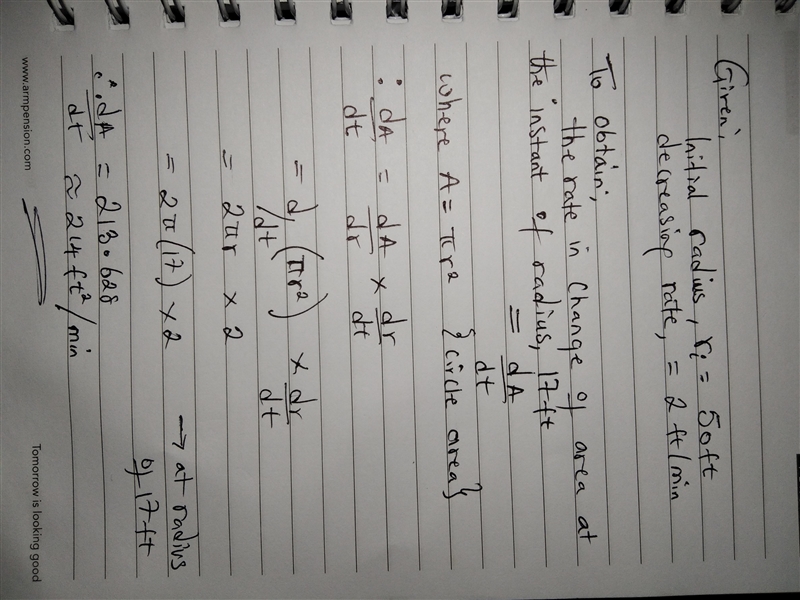 Given;
Initial radius, ri = 50ft
decreasing rate, = 2 ft/min
To obtain;
the rate in change of area at
the instant of radius, 17ft
= dA
dt
where A = πr² {circle area}
∴ dA = dA × dr
dt dr dt
= d/dt (πr²) × dr
dt
= 2πr × 2
= 2π(17) × 2 → at radius
of 17ft
∴ dA = 213.628
dt ≈ 214 ft²/min
www.armpension.com
Tomorrow is looking good